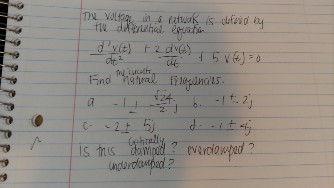 The voltage in a network is defined by
the differential equation
d²v(t)/dt² + 2 dv(t)/dt + 5 v(t) = 0
Find the circuit's natural frequencies.
a. -1 ± √24/2 j b. -1 ± 2j
c. -2 ± 5j d. -1 ± 4j
Is this critically damped? overdamped?
underdamped?